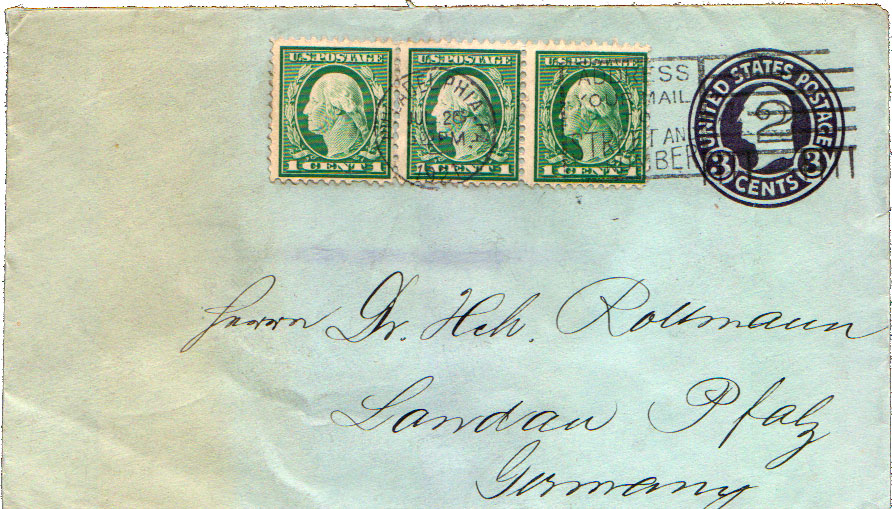 U.S.POSTAGE U.S.POSTAGE U.S.POSTAGE
1 CENT 1 1 CENT 1 1 CENT 1
PHILA
26
PM
ADDRESS
YOUR MAIL
STREET AND
NUMBER
UNITED STATES POSTAGE
2
3 CENTS 3
Herrn Dr. Hch. Rottmann
Landau Pfalz
Germany